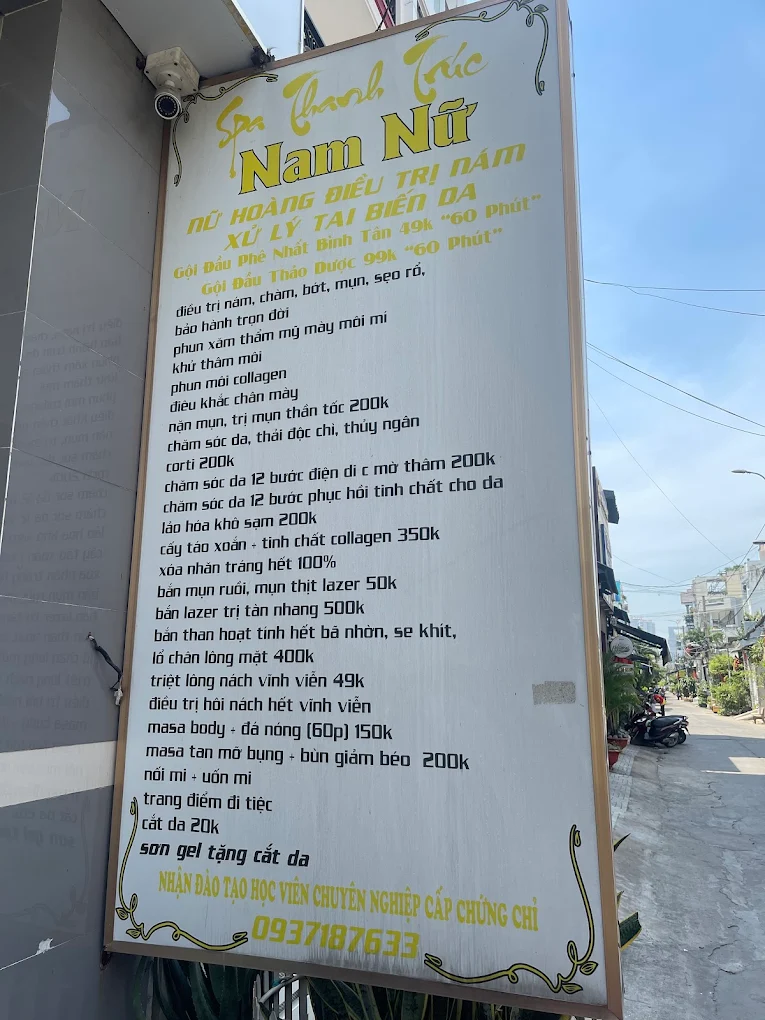 Spa Thanh Trúc
Nam Nữ
NỮ HOÀNG ĐIỀU TRỊ NÁM
XỬ LÝ TAI BIẾN DA
Gội Đầu Phê Nhất Bình Tân 49k "60 Phút"
Gội Đầu Thảo Dược 99k "60 Phút"
điều trị nám, chàm, bớt, mụn, sẹo rổ,
bảo hành trọn đời
phun xăm thẩm mỷ mày môi mí
khử thâm môi
phun môi collagen
điêu khắc chân mày
nặn mụn, trị mụn thần tốc 200k
chăm sóc da, thải độc chì, thủy ngân
corti 200k
chăm sóc da 12 bước điện di c mờ thâm 200k
chăm sóc da 12 bước phục hồi tinh chất cho da
lảo hóa khô sạm 200k
cấy tảo xoắn + tinh chất collagen 350k
xóa nhăn tráng hết 100%
bắn mụn ruồi, mụn thịt lazer 50k
bắn lazer trị tàn nhang 500k
bắn than hoạt tính hết bã nhờn, se khít,
lổ chân lông mặt 400k
triệt lông nách vĩnh viễn 49k
điều trị hôi nách hết vĩnh viễn
masa body + đá nóng (60p) 150k
masa tan mỡ bụng + bùn giảm béo 200k
nối mi + uốn mi
trang điểm đi tiệc
cắt da 20k
sơn gel tặng cắt da
NHẬN ĐÀO TẠO HỌC VIÊN CHUYÊN NGHIỆP CẤP CHỨNG CHỈ
0937187633